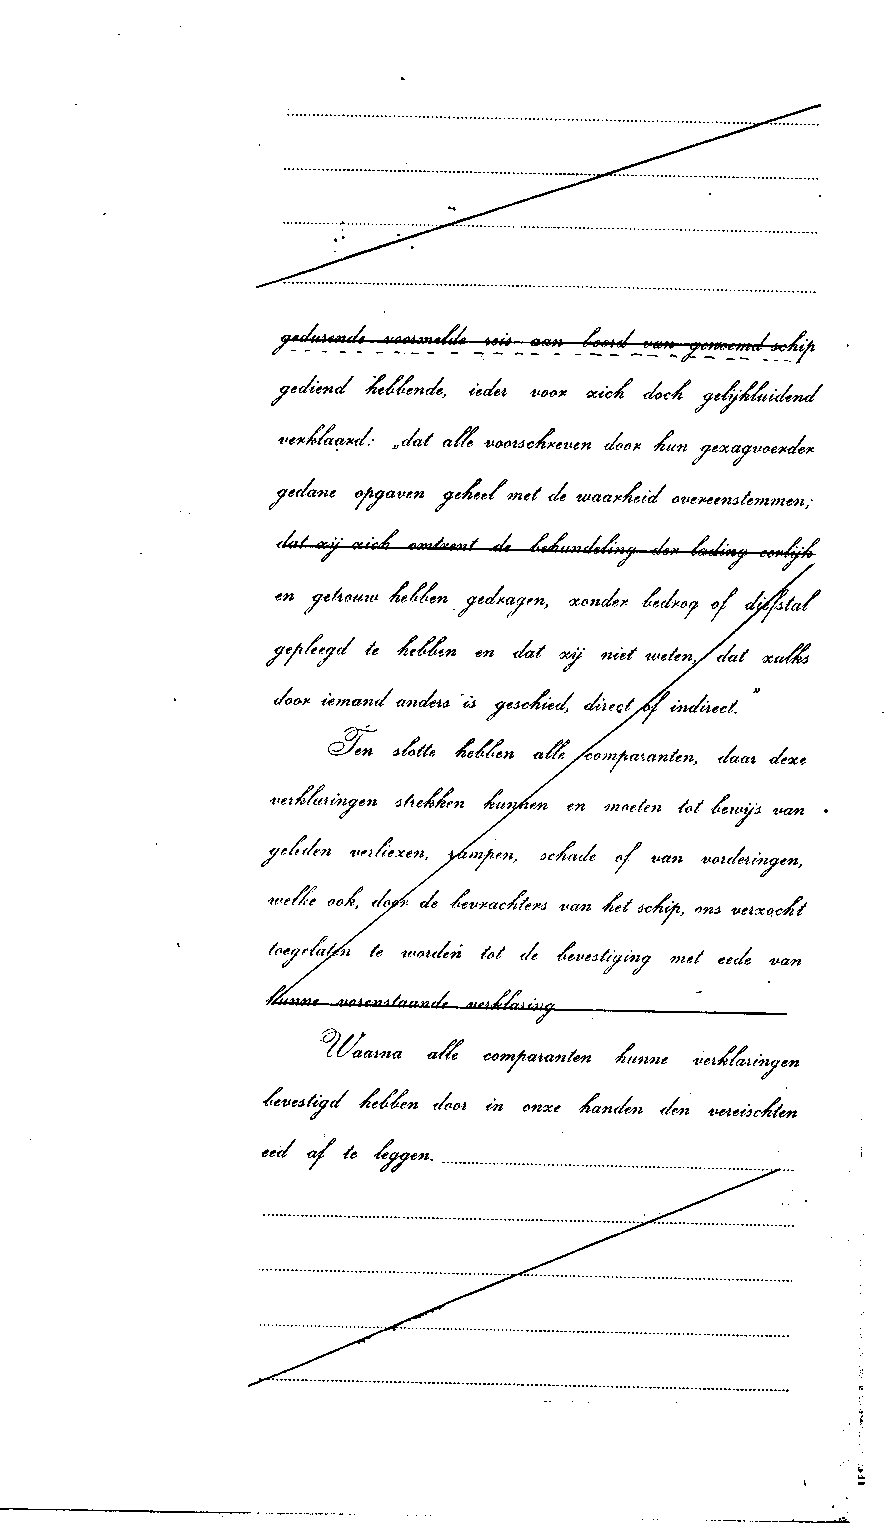 gedurende voormelde reis aan boord van genoemd schip
gediend hebbende, ieder voor zich doch gelijkluidend
verklaard: „dat alle voorschreven door hun gezagvoerder
gedane opgaven geheel met de waarheid overeenstemmen;
dat zij zich omtrent de behandeling der lading eerlijk
en getrouw hebben gedragen, zonder bedrog of diefstal
gepleegd te hebben en dat zij niet weten, dat zulks
door iemand anders is geschied, direct of indirect.”
Ten slotte hebben alle comparanten, daar deze
verklaringen strekken kunnen en moeten tot bewijs van
geleden verliezen, rampen, schade of van vorderingen,
welke ook, door de bevrachters van het schip, ons verzocht
toegelaten te worden tot de bevestiging met eede van
hunne vorenstaande verklaring
Waarna alle comparanten hunne verklaringen
bevestigd hebben door in onze handen den vereischten
eed af te leggen.